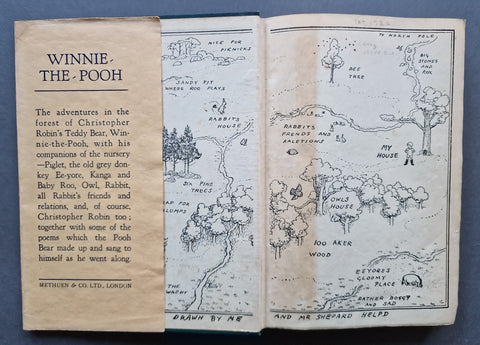 WINNIE-
THE-POOH
The adventures in the
forest of Christopher
Robin's Teddy Bear, Win-
nie-the-Pooh, with his
companions of the nursery
—Piglet, the old grey don-
key Ee-yore, Kanga and
Baby Roo, Owl, Rabbit,
all Rabbit's friends and
relations, and, of course,
Christopher Robin too;
together with some of the
poems which the Pooh
Bear made up and sang to
himself as he went along.
METHUEN & CO. LTD., LONDON
NICE FOR
PIKNICKS
SANDY PIT
WHERE ROO PLAYS
RABBITS
HOUSE
SIX PINE
TREES
AP FOR
LUMPS
THE
DRAWN BY ME
TO NORTH POLE
BIG
STONES
AND
ROX
BEE
TREE
RABBITS
FRENDS AND
RALETIONS
MY
HOUSE
OWLS
HOUSE
100 AKER
WOOD
EEYORES
GLOOMY
PLACE
RATHER BOGGY
AND SAD
AND MR SHEPARD HELPD